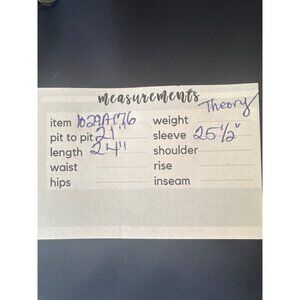 measurements
Theory
item 1029A176 weight
pit to pit 21" sleeve 25 1/2"
length 24" shoulder
waist rise
hips inseam